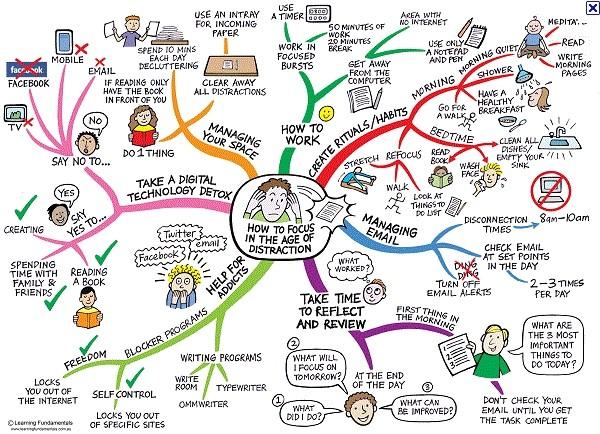 HOW TO FOCUS
IN THE AGE OF
DISTRACTION
HOW TO
WORK
USE
A TIMER
50 MINUTES OF
WORK
20 MINUTES
BREAK
WORK IN
FOCUSED
BURSTS
AREA WITH
NO INTERNET
USE ONLY
A NOTEPAD
AND PEN
GET AWAY
FROM THE
COMPUTER
CREATE RITUALS/HABITS
MORNING
MORNING QUIET
MEDITA...
READ
WRITE
MORNING
PAGES
SHOWER
HAVE A
HEALTHY
BREAKFAST
GO FOR
A WALK
BEDTIME
CLEAN ALL
DISHES/
EMPTY YOUR
SINK
READ
BOOK
WASH
FACE
REFOCUS
STRETCH
WALK
LOOK AT
THINGS TO
DO LIST
MANAGING
EMAIL
DISCONNECTION
TIMES
8am-10am
CHECK EMAIL
AT SET POINTS
IN THE DAY
2-3 TIMES
PER DAY
DING
DING
TURN OFF
EMAIL ALERTS
TAKE TIME
TO REFLECT
AND REVIEW
WHAT
WORKED?
FIRST THING IN
THE MORNING
WHAT ARE
THE 3 MOST
IMPORTANT
THINGS TO
DO TODAY?
1
2
3
DON'T CHECK
YOUR EMAIL
UNTIL YOU GET
THE TASK COMPLETE
AT THE END
OF THE DAY
1
WHAT
DID I DO?
2
WHAT WILL
I FOCUS ON
TOMORROW?
3
WHAT CAN
BE IMPROVED?
HELP FOR
ADDICTS
Twitter
email
Facebook
BLOCKER PROGRAMS
FREEDOM
LOCKS
YOU OUT OF
THE INTERNET
SELF CONTROL
LOCKS YOU OUT
OF SPECIFIC SITES
WRITING PROGRAMS
WRITE
ROOM
OMMWRITER
TYPEWRITER
TAKE A DIGITAL
TECHNOLOGY DETOX
SAY NO TO...
NO
TV
facebook
FACEBOOK
MOBILE
EMAIL
SAY
YES TO...
YES
CREATING
SPENDING
TIME WITH
FAMILY &
FRIENDS
READING
A BOOK
MANAGING
YOUR SPACE
DO 1 THING
IF READING ONLY
HAVE THE BOOK
IN FRONT OF YOU
SPEND 10 MINS
EACH DAY
DECLUTTERING
USE AN INTRAY
FOR INCOMING
PAPER
CLEAR AWAY
ALL DISTRACTIONS
© Learning Fundamentals
www.learningfundamentals.com.au